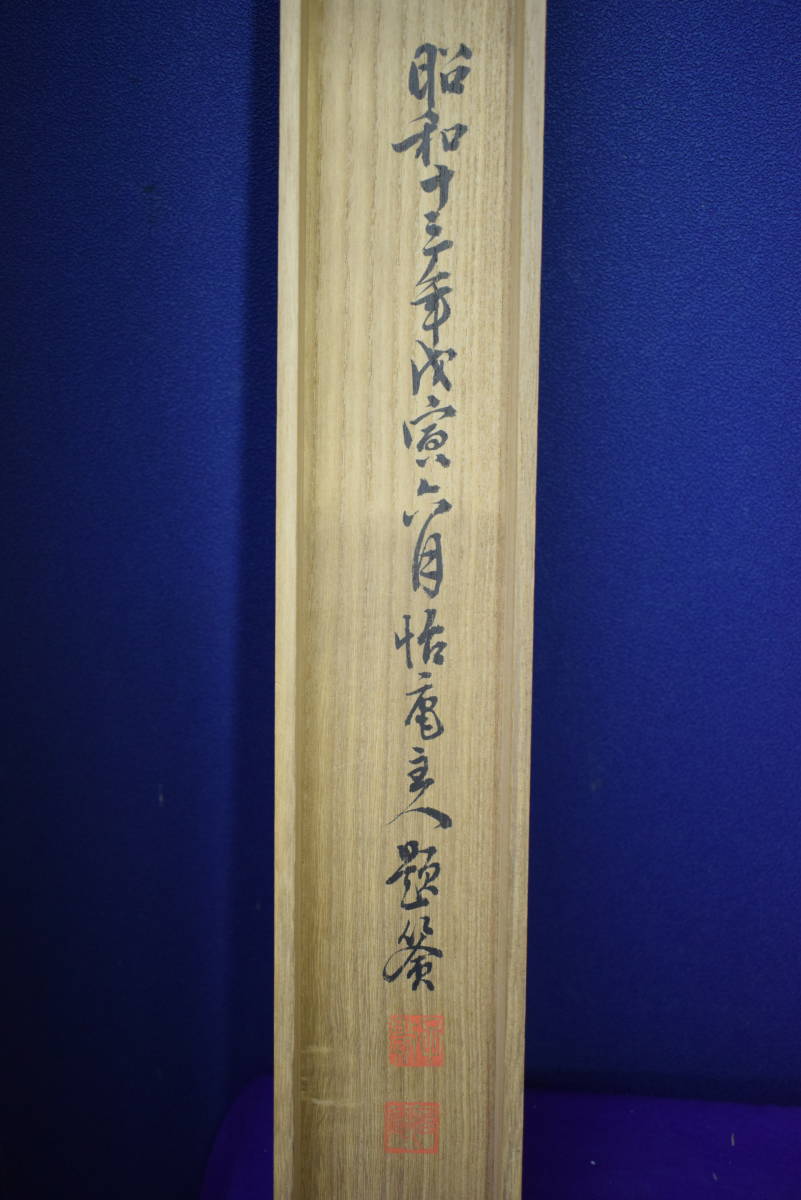 昭和十三年戊寅六月怙庵主人題簽